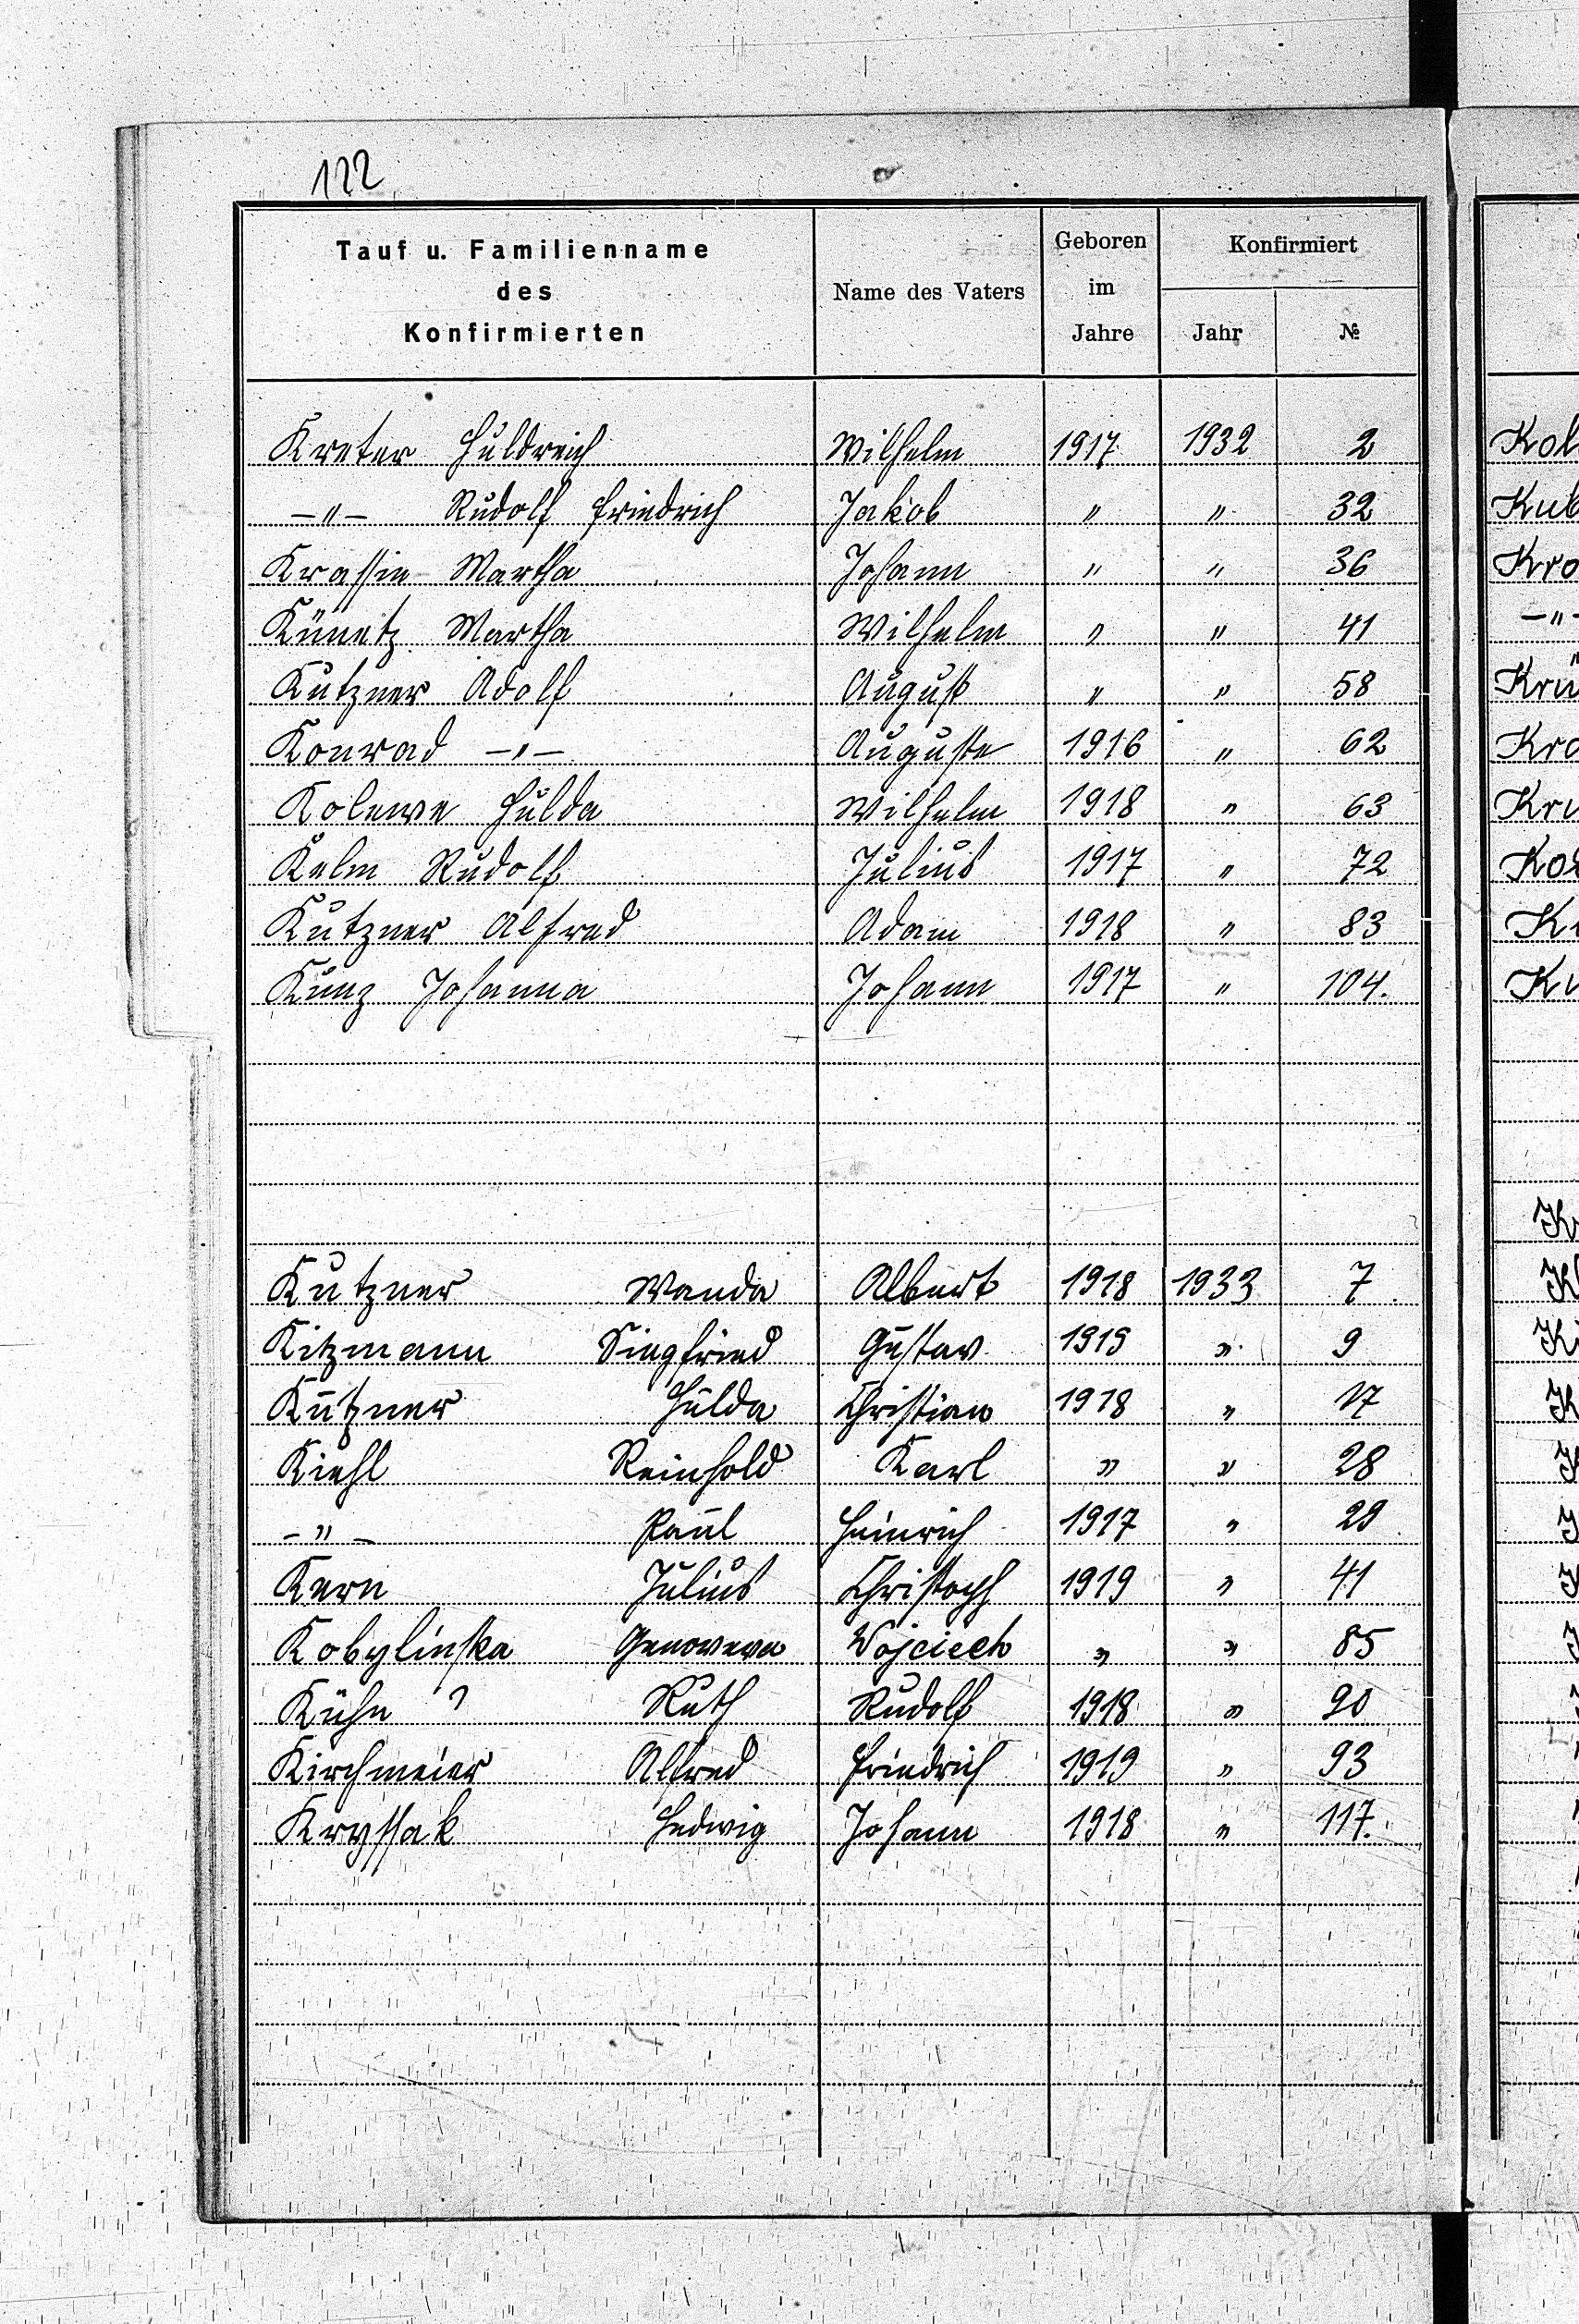 122
Tauf u. Familienname des Konfirmierten | Name des Vaters | Geboren im Jahre | Konfirmiert Jahr | №
Kreter Huldreich Wilhelm 1917 1932 2
-"- Rudolf Friedrich Jakob " " 32
Krassin Martha Johann " " 36
Künetz Martha Wilhelm " " 41
Kutzner Adolf August " " 58
Konrad -"- Auguste 1916 " 62
Kolewe Hulda Wilhelm 1918 " 63
Kelm Rudolf Julius 1917 " 72
Kutzner Alfred Adam 1918 " 83
Kunz Johanna Johann 1917 " 104.
Kutzner Wanda Albert 1918 1933 7
Kitzmann Siegfried Gustav 1919 " 9
Kutzner Hulda Christian 1918 " 17
Kiehl Reinhold Karl " " 28
-"- Paul Heinrich 1917 " 29
Kern Julius Christoph 1919 " 41
Kobylinska Genowewa Wojciech " " 85
Kühn ? Ruth Rudolf 1918 " 90
Kirchmeier Alfred Friedrich 1919 " 93
Kryssak Hedwig Johann 1918 " 117.